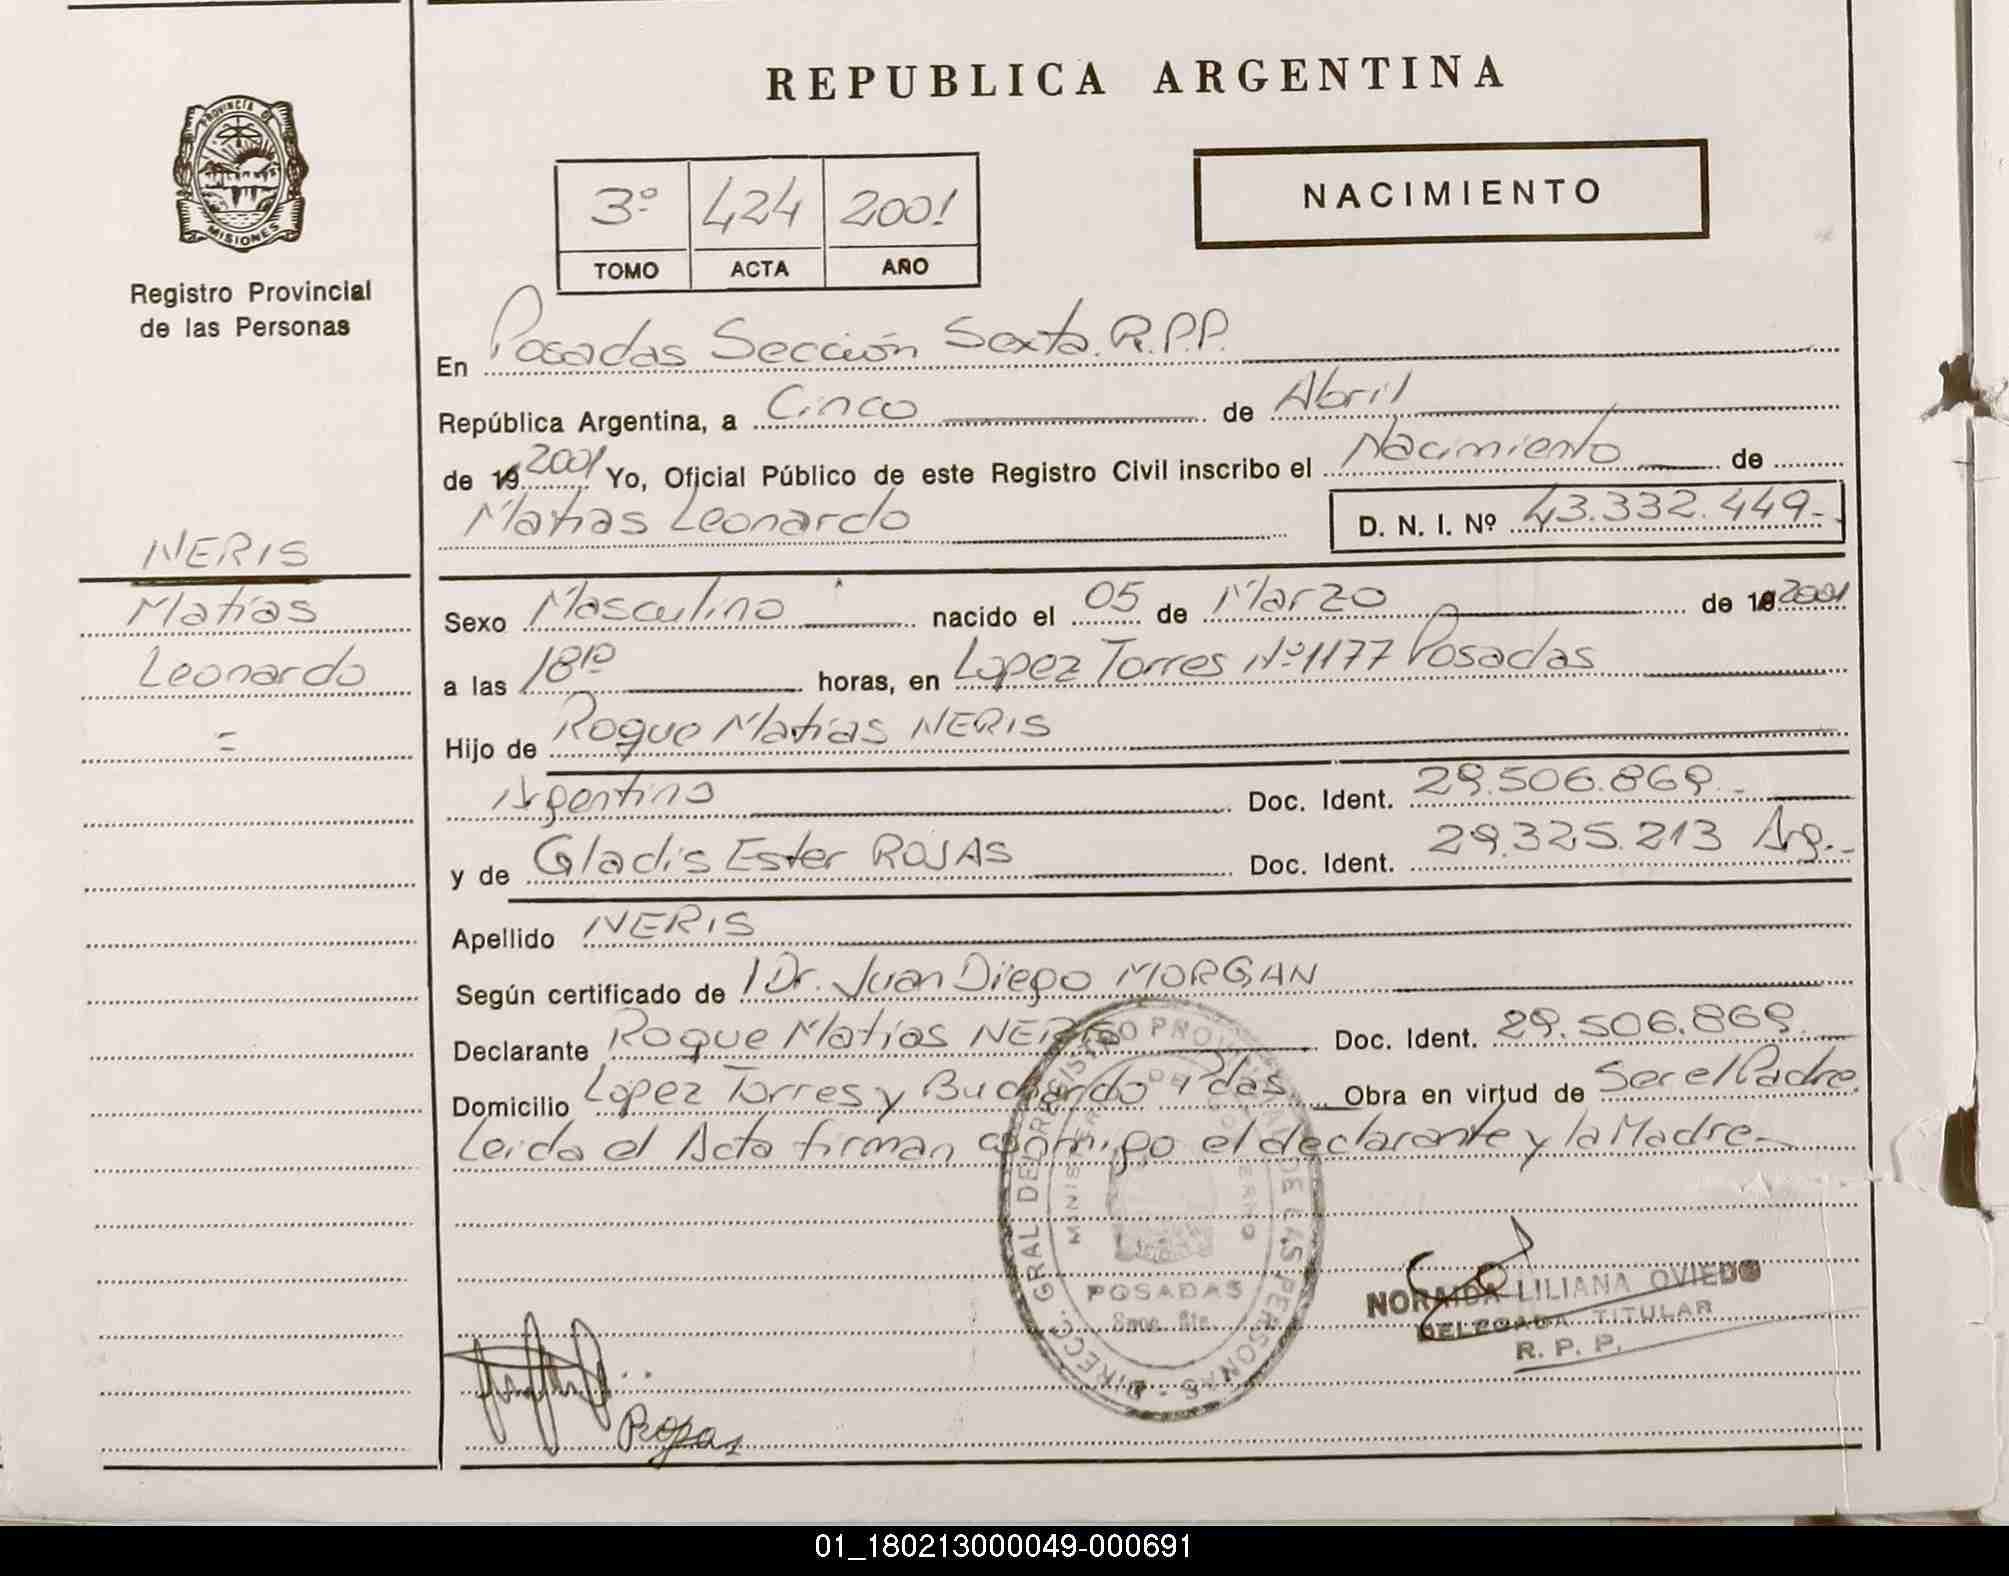 REPUBLICA ARGENTINA
PROVINCIA DE
MISIONES
Registro Provincial
de las Personas
3º 424 2001
TOMO ACTA AÑO
NACIMIENTO
En Posadas Sección Sexta. R.P.P.
República Argentina, a Cinco de Abril
de 19 2001 Yo, Oficial Público de este Registro Civil inscribo el Nacimiento de
Matías Leonardo D. N. I. Nº 43.332.449-
NERIS
Matías
Leonardo
=
Sexo Masculino nacido el 05 de Marzo de 19 2001
a las 18 10 horas, en Lopez Torres Nº 1177 Posadas
Hijo de Roque Matías NERIS
Argentino Doc. Ident. 29.506.869.-
y de Gladis Ester ROJAS Doc. Ident. 29.325.213 Arg.-
Apellido NERIS
Según certificado de Dr. Juan Diego MORGAN
Declarante Roque Matías NERIS Doc. Ident. 29.506.869
Domicilio Lopez Torres y Buchardo Pdas Obra en virtud de Ser el Padre.
Leida el Acta firman conmigo el declarante y la Madre.-
DIRECC. GRAL DEL REGISTRO PROVINCIAL DE LAS PERSONAS -
MINISTERIO DE GOBIERNO
POSADAS
Secc. 6ta.
NORAIDA LILIANA OVIEDO
DELEGADA TITULAR
R. P. P.
Rojas
01_180213000049-000691